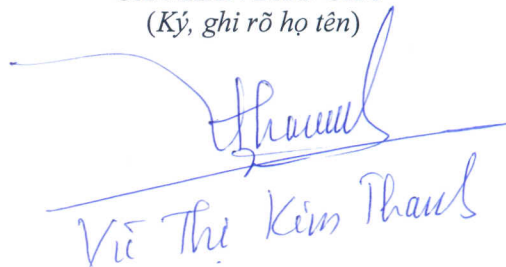 (Ký, ghi rõ họ tên)
Thanh
Vũ Thị Kim Thanh